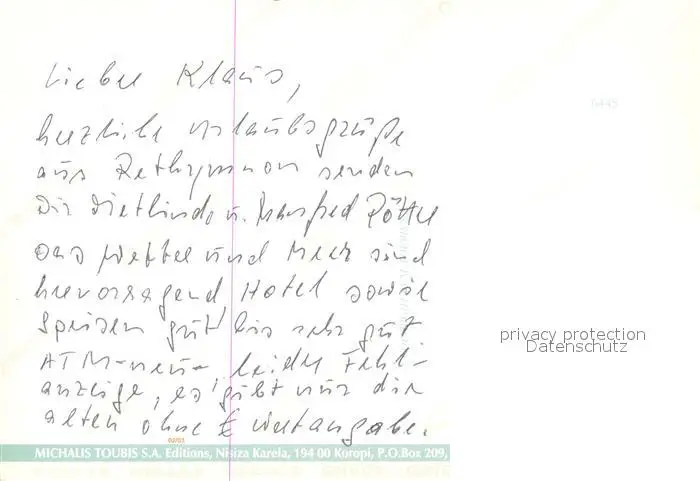 Lieber Klaus,
herzliche Urlaubsgrüße
aus Rethymnon senden
Dir Dietlinde u. Manfred
Das Wetter und Meer sind
hervorragend Hotel sowie
Speisen gut bis sehr gut
ATM-neu- leider Fehl-
anzeige, es gibt nur die
alten ohne € Wertangabe.
0445
privacy protection
Datenschutz
02/03
MICHALIS TOUBIS S.A. Editions, Nisiza Karela, 194 00 Koropi, P.O.Box 209,